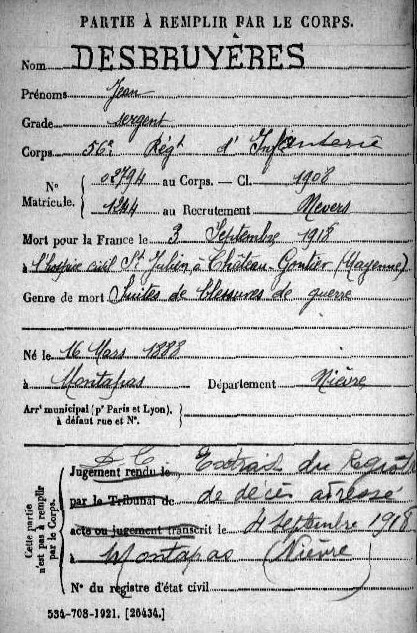 PARTIE À REMPLIR PAR LE CORPS.
Nom DESBRUYÈRES
Prénoms Jean
Grade sergent
Corps 56e Régt d'Infanterie
N° Matricule. 02794 au Corps. — Cl. 1908
1244 au Recrutement Nevers
Mort pour la France le 3 Septembre 1918
à l'hospice civil St Julien à Château-Gontier (Mayenne)
Genre de mort Suites de blessures de guerre
Né le 16 Mars 1888
à Montapas Département Nièvre
Arrt municipal (pr Paris et Lyon), à défaut rue et N°.
Cette partie n'est pas à remplir par le Corps.
Jugement rendu le Extrait du Registre
par le Tribunal de de décès adressé
acte ou jugement transcrit le 4 septembre 1918
à Montapas (Nièvre)
N° du registre d'état civil
534-708-1921. [26434.]